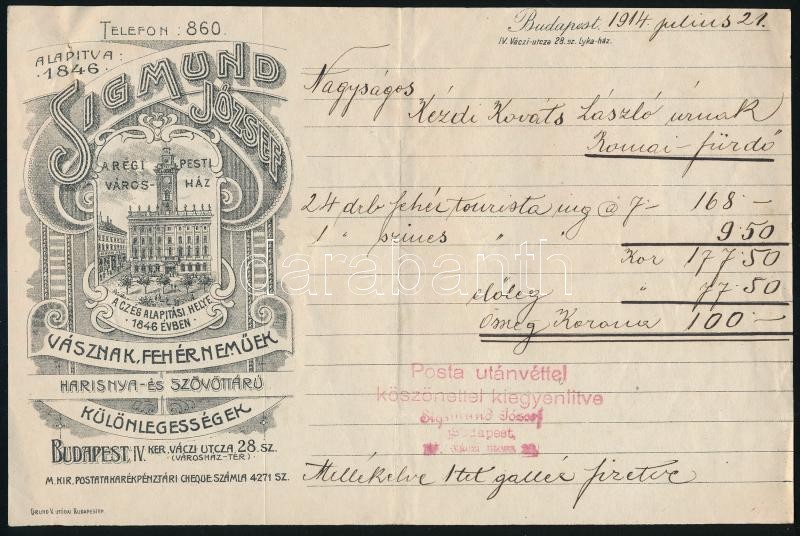 TELEFON : 860.
ALAPITVA :
1846.
SIGMUND
JÓZSEF
A RÉGI PESTI
VÁROS- HÁZ
A CZÉG ALAPITÁSI HELYE
1846 ÉVBEN
VÁSZNAK, FEHÉRNEMŰEK
HARISNYA- ÉS SZÖVÖTTÁRÚ
KÜLÖNLEGESSÉGEK
BUDAPEST, IV. KER. VÁCZI UTCZA 28. SZ.
(VÁROSHÁZ-TÉR.)
M. KIR. POSTATAKARÉKPÉNZTÁRI CHEQUE SZÁMLA 4271 SZ.
GRUND V. UTÓDAI BUDAPESTEN.
Budapest, 1914 julius 21.
IV. Váczi-utcza 28. sz. Lyka-ház.
Nagyságos
Kézdi Kováts László úrnak
Romai-fürdő
24 drb fehér tourista ing @ 7- 168 -
1 " szines " " 9.50
Kor 177.50
előleg " 77.50
Összeg Korona 100 -
Posta utánvéttel
köszönettel kiegyenlitve
Sigmund József
Budapest,
Mellékelve 1 tct gallér fizetve
darabanth